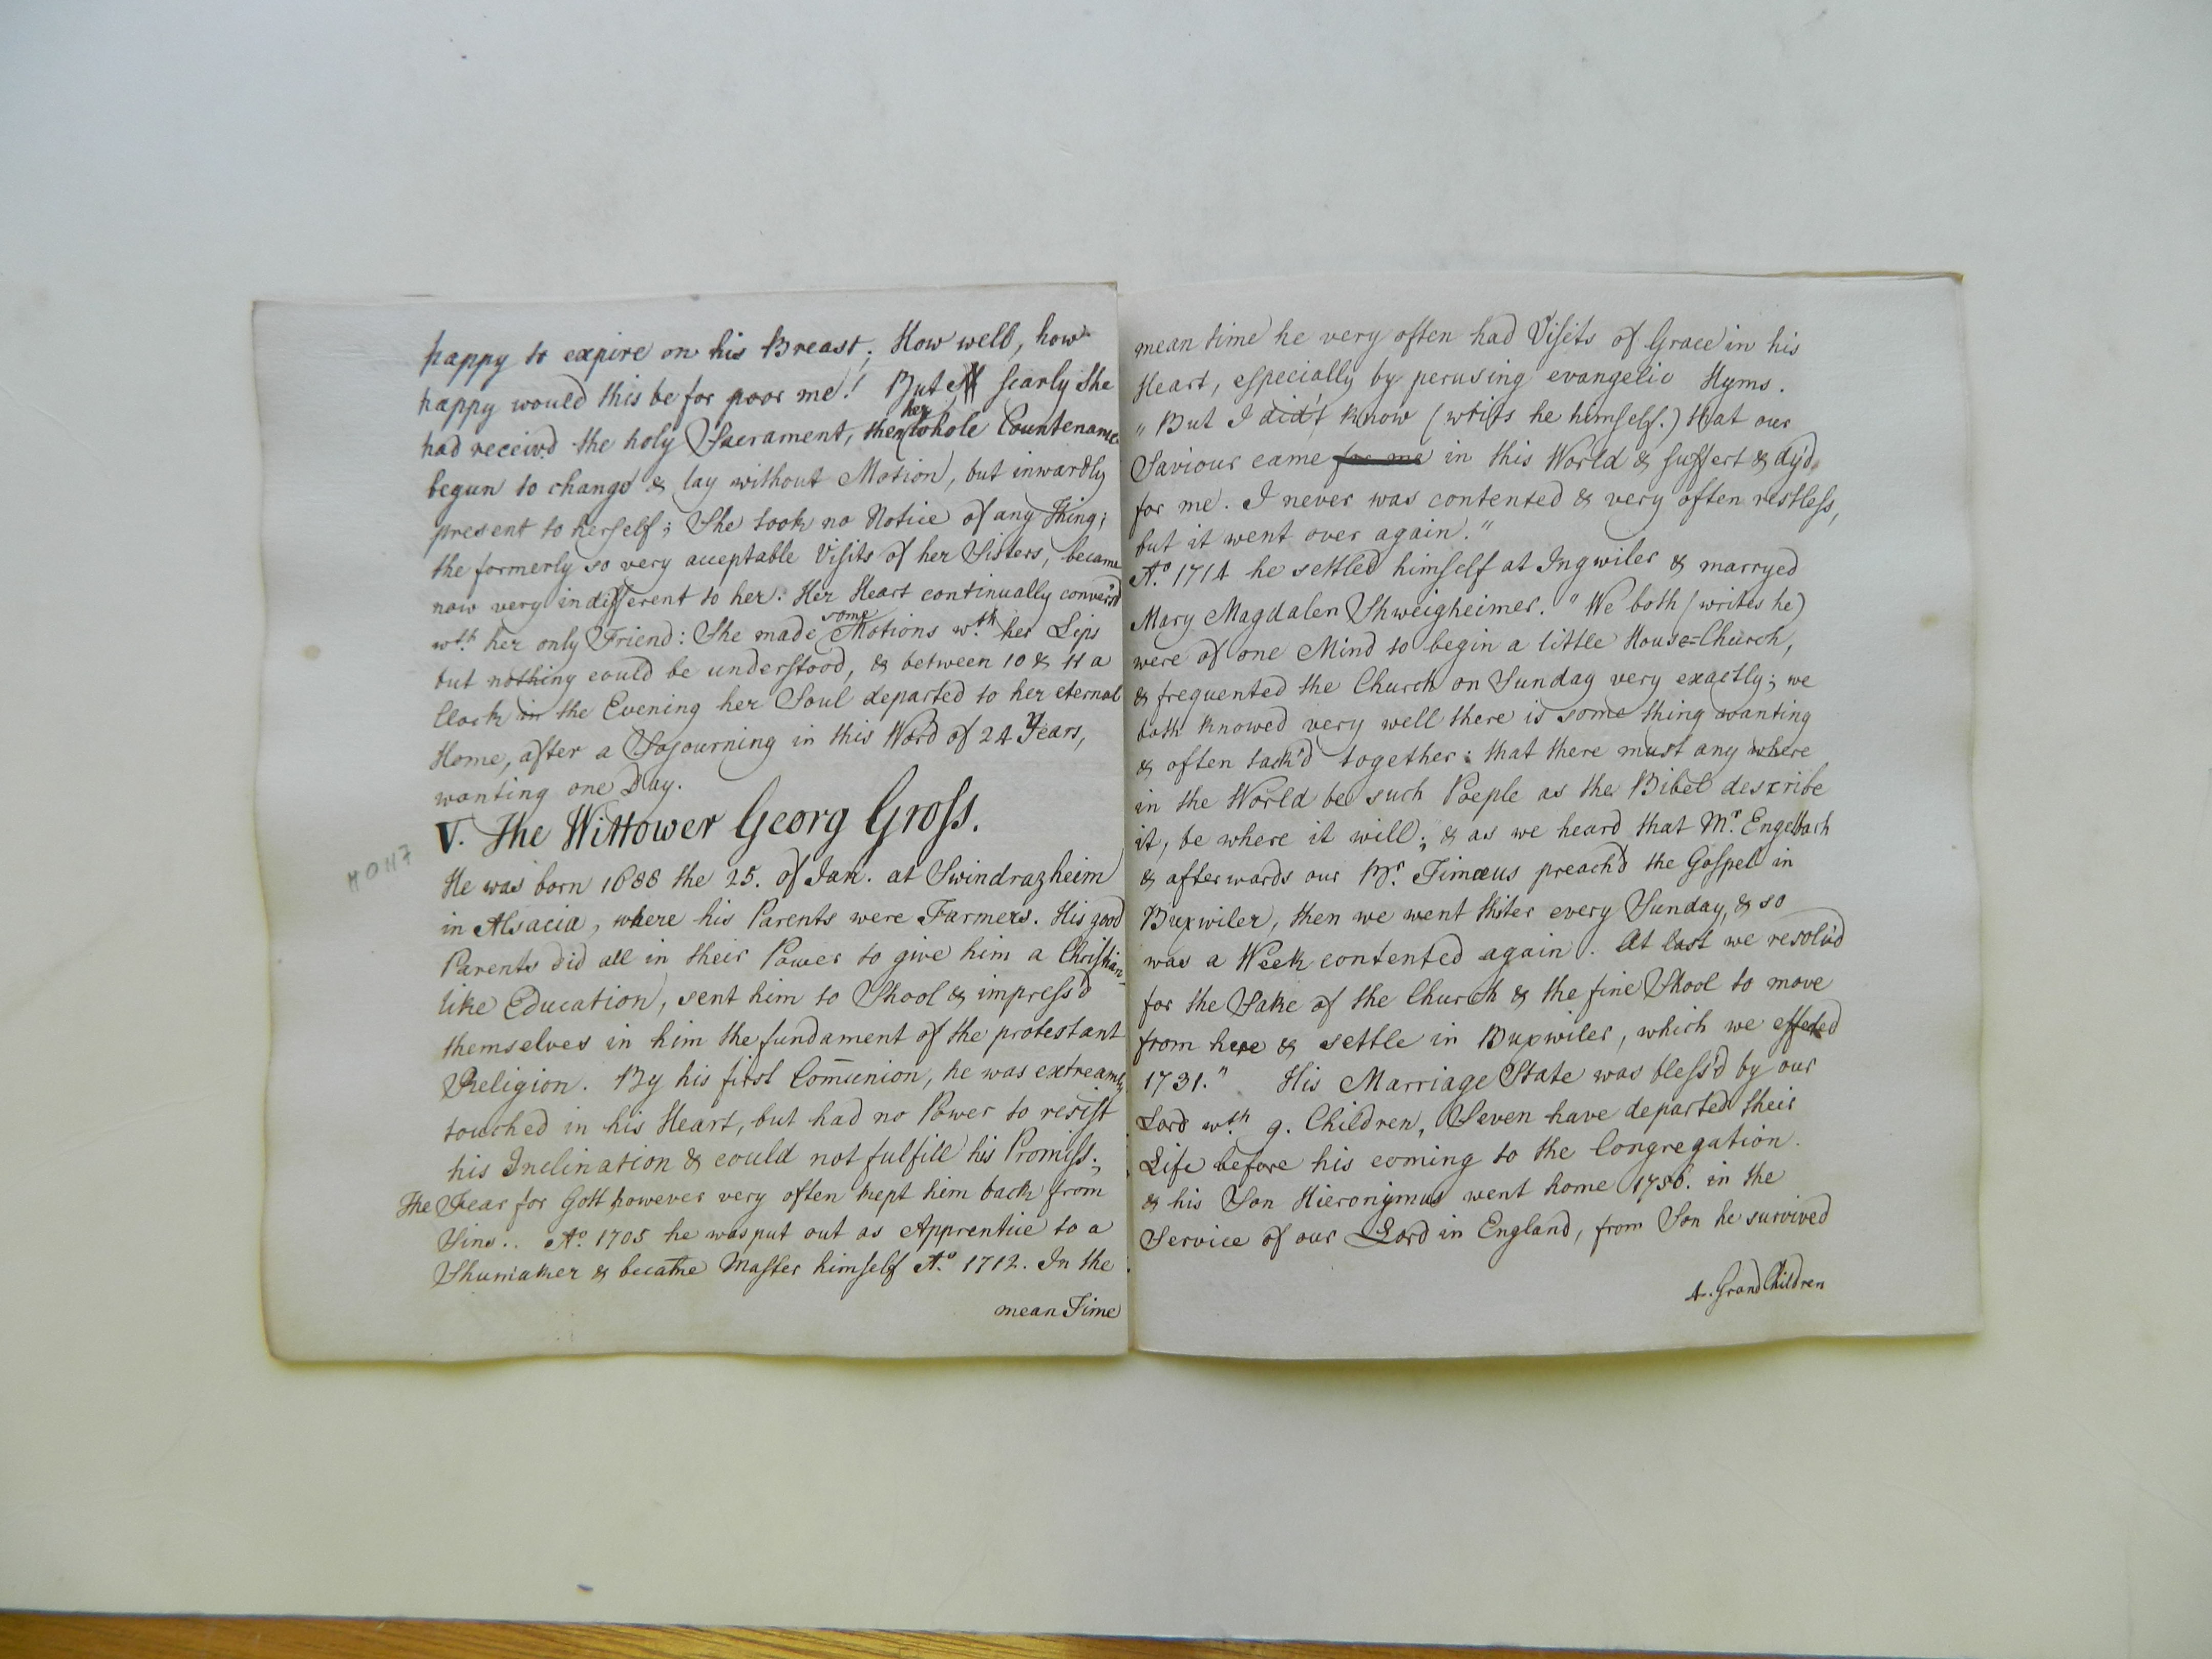 happy to expire on his Breast; How well, how
happy would this be for poor me! But scarly she
her
had receiv'd the holy Sacrament, then whole Countenance
begun to change & lay without Motion, but inwardly
present to herself; She took no Notice of any Thing;
the formerly so very acceptable Visits of her Sisters, became
now very indifferent to her. Her Heart continually convers'd
some
wth. her only Friend: She made Motions wth. her Lips
but nothing could be understood, & between 10 & 11 a
Clock in the Evening her Soul departed to her eternal
Home, after a Sojourning in this Word of 24 Years,
wanting one Day.
V. The Wittower Georg Gross.
He was born 1688 the 25. of Jan. at Swindrazheim
in Alsacia, where his Parents were Farmers. His good
Parents did all in their Power to give him a Christian-
like Education, sent him to Shool & impress'd
themselves in him the fundament of the protestant
Religion. By his first Com̅union, he was extreamly
touched in his Heart, but had no Power to resist
his Inclination & could not fulfill his Promiss.;
The Fear for Gott however very often kept him back from
Sins.. Ao. 1705 he was put out as Apprentice to a
Shumaker & became Master himself Ao. 1712. In the
mean Time
mean time he very often had Visits of Grace in his
Heart, especially by perusing evangelic Hyms.
" But I did't know (writs he himself.) that our
Saviour came for me in this World & suffert & dy'd
for me. I never was contented & very often restless,
but it went over again."
Ao. 1714 he settled himself at Ingwiler & marryed
Mary Magdalen Shweigheimer. "We both (writes he)
were of one Mind to begin a little House=Church,
& frequented the Church on Sunday very exactly; we
both knowed very well there is some thing wanting
& often tack'd together: that there must any where
in the World be such Poeple as the Bibel describe
it, be where it will; & as we heard that Mr. Engelbach
& afterwards our Br. Timæus preach'd the Gospel in
Buxwiler, then we went thiter every Sunday, & so
was a Week contented again. At last we resolv'd
for the Sake of the Church & the fine Shool to move
from here & settle in Buxwiler, which we effected
1731." His Marriage State was bless'd by our
Lord wth. 9. Children, Seven have departed their
Life before his coming to the Congregation.
& his Son Hieronymus went home 1756. in the
Service of our Lord in England, from Son he survived
4. GrandChildren